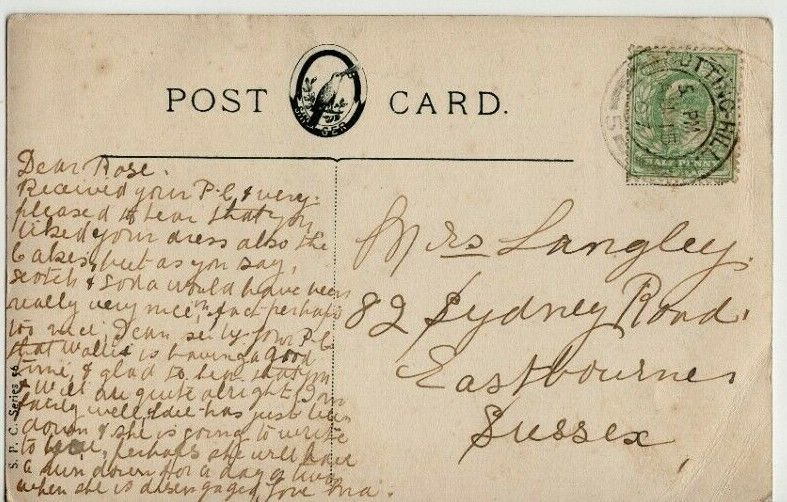 POST CARD.
SONGSTER
NOTTING-HILL
5 PM
HALFPENNY
Dear Rose.
Received your P.C & very
pleased to hear that you
liked your dress also the
Cakes, but as you say,
scotch & Soda would have been
really very nice, in fact perhaps
too nice, I can see by your P.C
that Wallis is having a good
time, & glad to hear that you
& Will are quite alright. I'm
fairly well, has just been
down & she is going to write
to you, perhaps she will have
a run down for a day or two
when she is disengaged, love
Mrs Langley.
82 Sydney Road.
Eastbourne
Sussex
S. P. C. Series 46